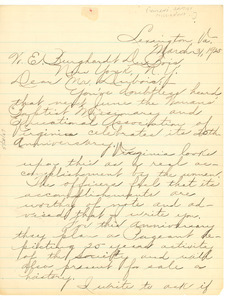 Lexington, Va.
March 31, 1920
W. E. Burghardt DuBois
New York, N. Y.
Dear Mr.
You've doubtless heard
that next June the Womans'
Baptist Missionary and
Educational Association of
Virginia celebrates its 20th
Anniversary.
Virginia looks
upon this as a real ac-
complishment by the women.
The officers feel that its
accomplishments are
worthy of note and ad-
vised that I write you.
For this Anniversary
they plan a Pageant de-
picting 20 years activity
of the Society, and will
also present for sale a
history.
I write to ask if